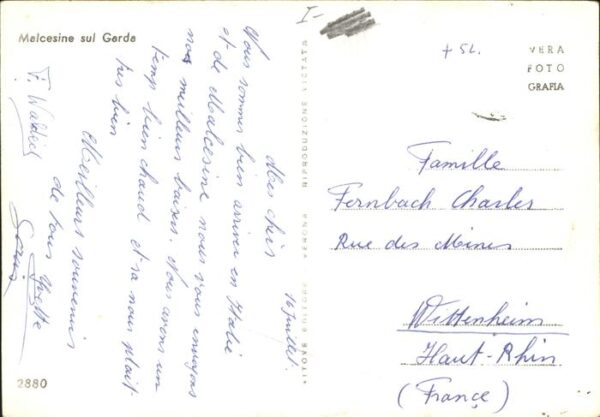 Malcesine sul Garda
I-
+ 52.
VERA
FOTO
GRAFIA
16 Juillet.
Mes chers
Nous sommes bien arriver en Italie
et de Malcesine nous vous envoyons
nos meilleurs baisers. Nous avons un
temp bien chaud et sa nous plait
tres bien
Meilleurs souvenirs
de tous Yvette
RIPRODUZIONE VIETATA
Famille
Fernbach Charles
Rue des Mines
Wittenheim
Haut-Rhin
(France)
2880